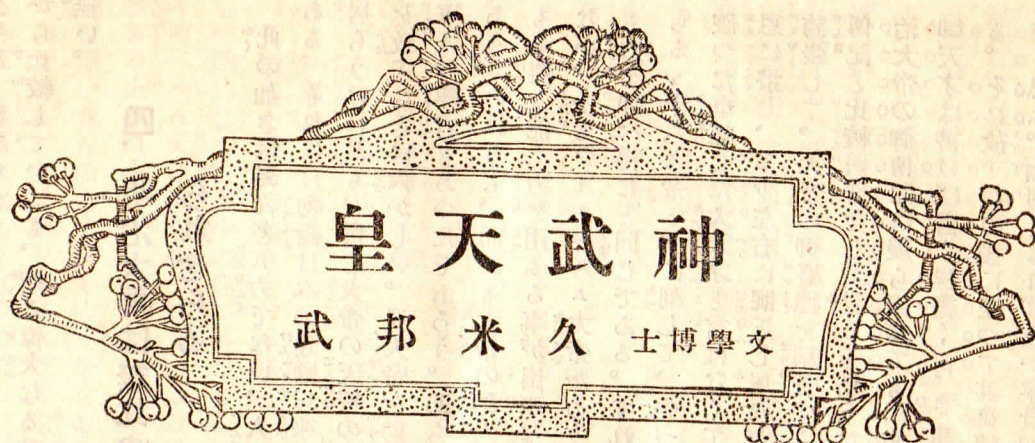 神武天皇
文學博士 久米邦武